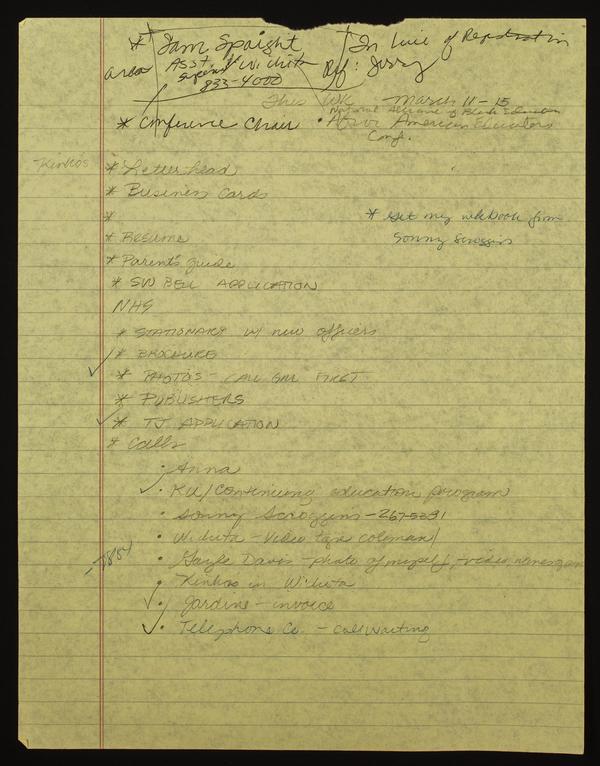 * Sam Spaight
Asst. of Wichita
833-4000
area
In Lieu of Registration
Ref: Jerry
This Wk March 11-15
National Alliance of Black Education
* Conference Chair • African American Educators
Conf.
Kinko's
* Letterhead
* Business Cards
*
* get my notebook from
Sonny Scroggins
* Resume
* Parent's guide
* SW BELL APPLICATION
NHS
* STATIONARY W/ new officers
* BROCHURE
* PHOTOS - CALL FIRST
* PUBLISHERS
* TJ APPLICATION
* Calls
• Anna
• KU/Continuing education program
• Sonny Scroggins - 267-5231
• Wichita - Video tape coleman
• Gayle Davis - photo of myself, video,
• Kinkos in Wichita
• Jardine - invoice
• Telephone Co. - call waiting